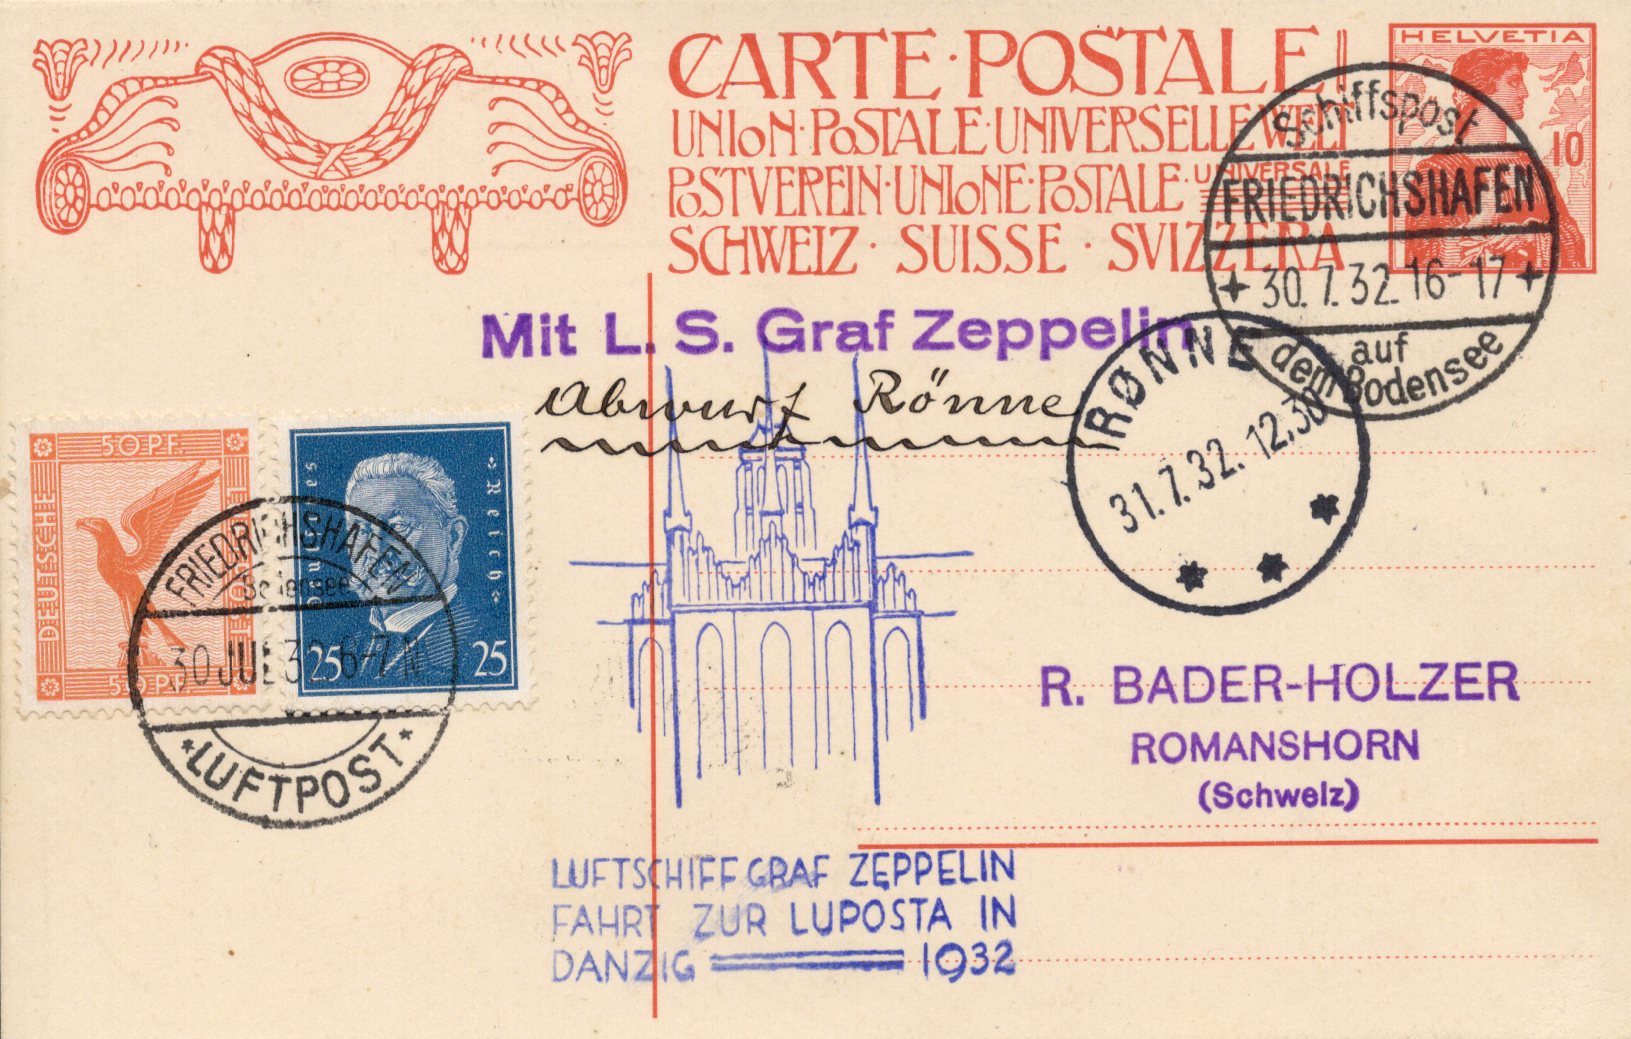 CARTE · POSTALE
UNION · POSTALE · UNIVERSELLE WELT
POSTVEREIN · UNIONE · POSTALE · UNIVERSALE
SCHWEIZ · SUISSE · SVIZZERA
HELVETIA
10
Schiffspost
FRIEDRICHSHAFEN
30.7.32.16-17
auf
dem Bodensee
Mit L. S. Graf Zeppelin
Abwurf Rönne
RØNNE
31.7.32. 12,30
50 PF.
DEUTSCHE
50 PF.
Deutsches
Reich
25 25
FRIEDRICHSHAFEN
Bodensee
30 JUL 32 6-7 N
LUFTPOST
R. BADER-HOLZER
ROMANSHORN
(Schweiz)
LUFTSCHIFF GRAF ZEPPELIN
FAHRT ZUR LUPOSTA IN
DANZIG 1932